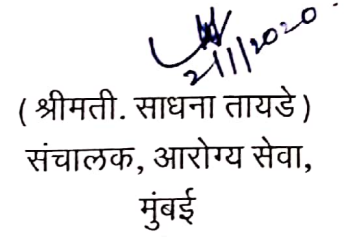 2/1/2020
( श्रीमती. साधना तायडे )
संचालक, आरोग्य सेवा,
मुंबई